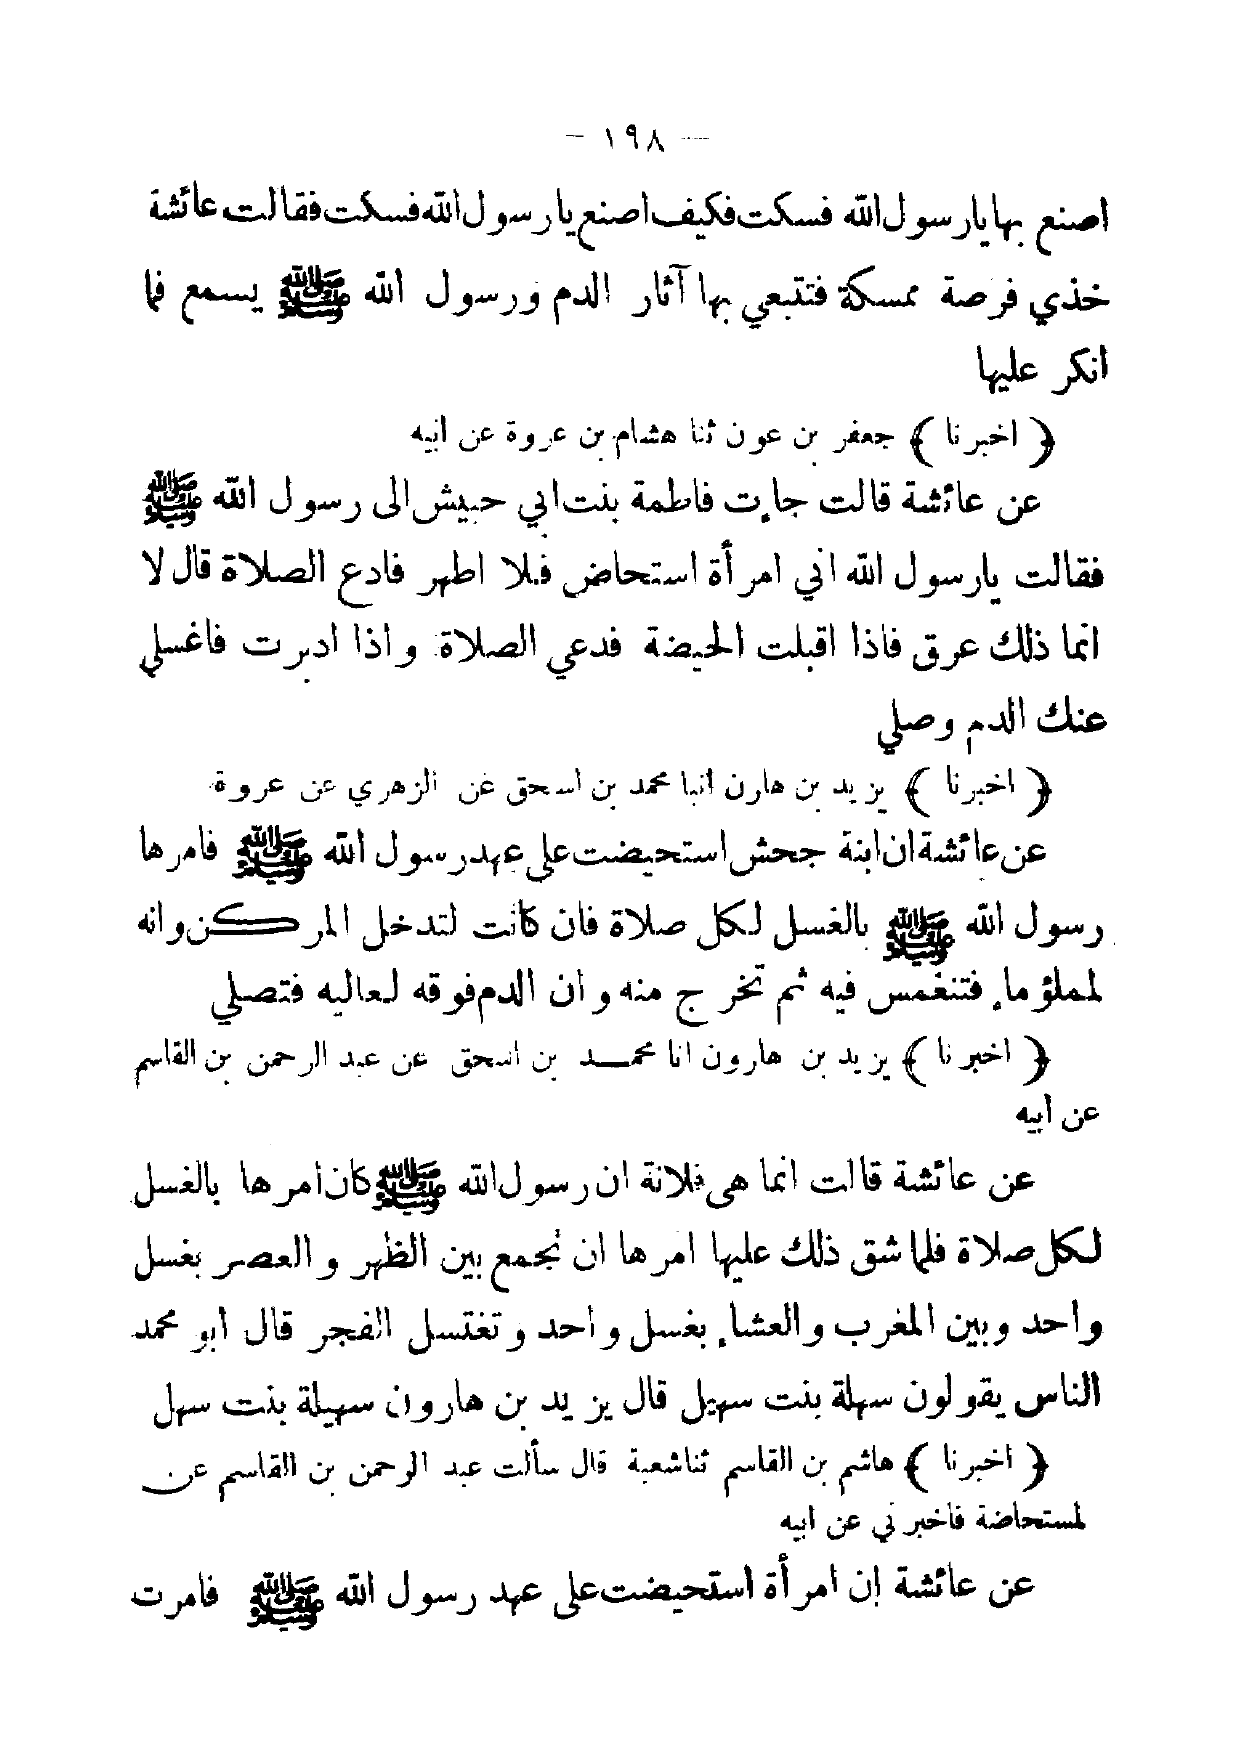 — ١٩٨ —
اصنع بها يارسول الله فسكت فكيف اصنع يارسول الله فسكت فقالت عائشة
خذي فرصة ممسكة فتتبعي بها آثار الدم ورسول الله ﷺ يسمع فما
انكر عليها
﴿ اخبرنا ﴾ جعفر بن عون ثنا هشام بن عروة عن ابيه
عن عائشة قالت جاءت فاطمة بنت ابي حبيش الى رسول الله ﷺ
فقالت يارسول الله اني امرأة استحاض فلا اطهر فادع الصلاة قال لا
انما ذلك عرق فاذا اقبلت الحيضة فدعي الصلاة واذا ادبرت فاغسلي
عنك الدم وصلي
﴿ اخبرنا ﴾ يزيد بن هارن انبا محمد بن اسحق عن الزهري عن عروة
عن عائشة ان ابنة جحش استحيضت على عهد رسول الله ﷺ فامرها
رسول الله ﷺ بالغسل لكل صلاة فان كانت لتدخل المركن وانه
لمملؤ ماء فتنغمس فيه ثم تخرج منه وان الدم فوقه لعاليه فتصلي
﴿ اخبرنا ﴾ يزيد بن هارون انا محمد بن اسحق عن عبد الرحمن بن القاسم
عن أبيه
عن عائشة قالت انما هى فلانة ان رسول الله ﷺ كان أمرها بالغسل
لكل صلاة فلما شق ذلك عليها امرها ان تجمع بين الظهر والعصر بغسل
واحد وبين المغرب والعشاء بغسل واحد وتغتسل الفجر قال أبو محمد
الناس يقولون سهلة بنت سهيل قال يزيد بن هارون سهيلة بنت سهل
﴿ اخبرنا ﴾ هاشم بن القاسم ثنا شعبة قال سألت عبد الرحمن بن القاسم عن
لمستحاضة فاخبرني عن ابيه
عن عائشة إن امرأة استحيضت على عهد رسول الله ﷺ فامرت